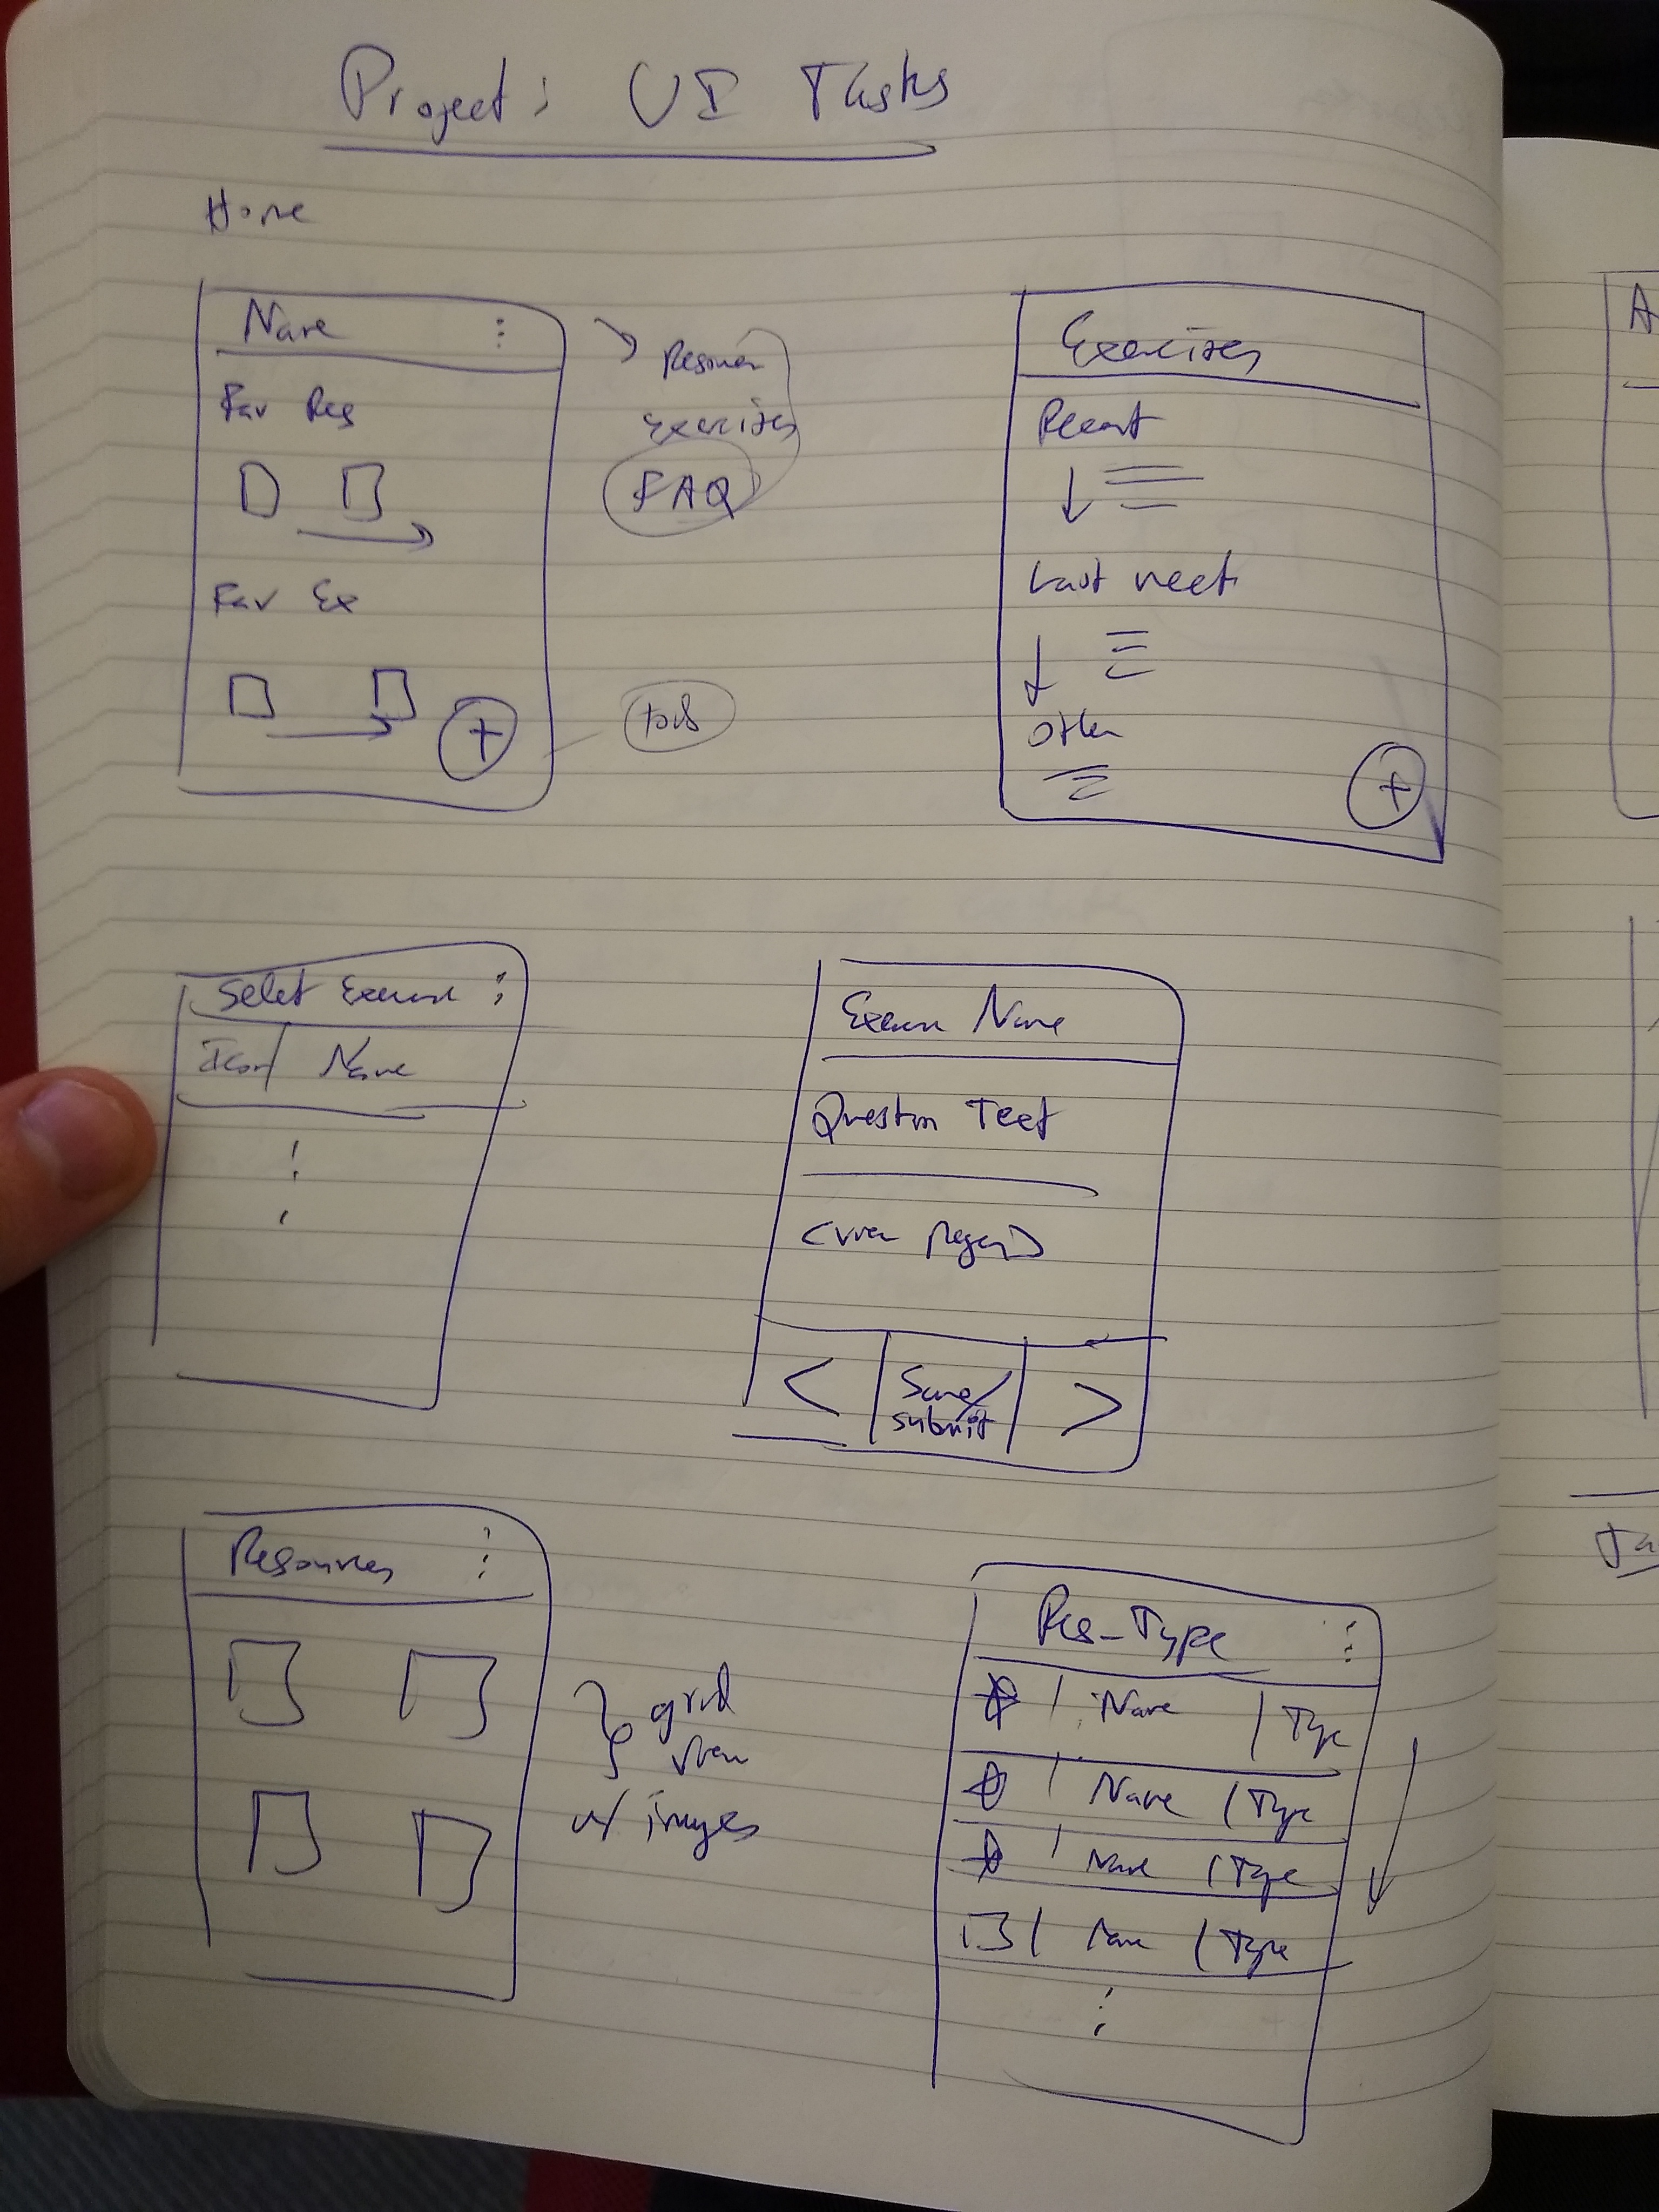 Project: UI Tasks
Home
Name
Fav Res
Fav Ex
+
Resources
Exercises
FAQ
Exercises
Recent
Last week
Other
+
Select Exercise
Icon / Name
Exercise Name
Question Text
<
Save/
submit
>
Resources
grid
view
w/ images
Res_Type
| Name | Type
| Name | Type
| Name | Type
| Name | Type
A